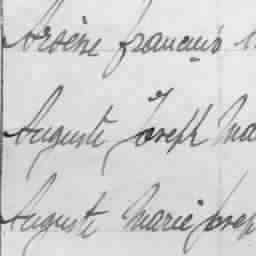 Arsène françois
Auguste Joseph Ma
Auguste Marie Josep